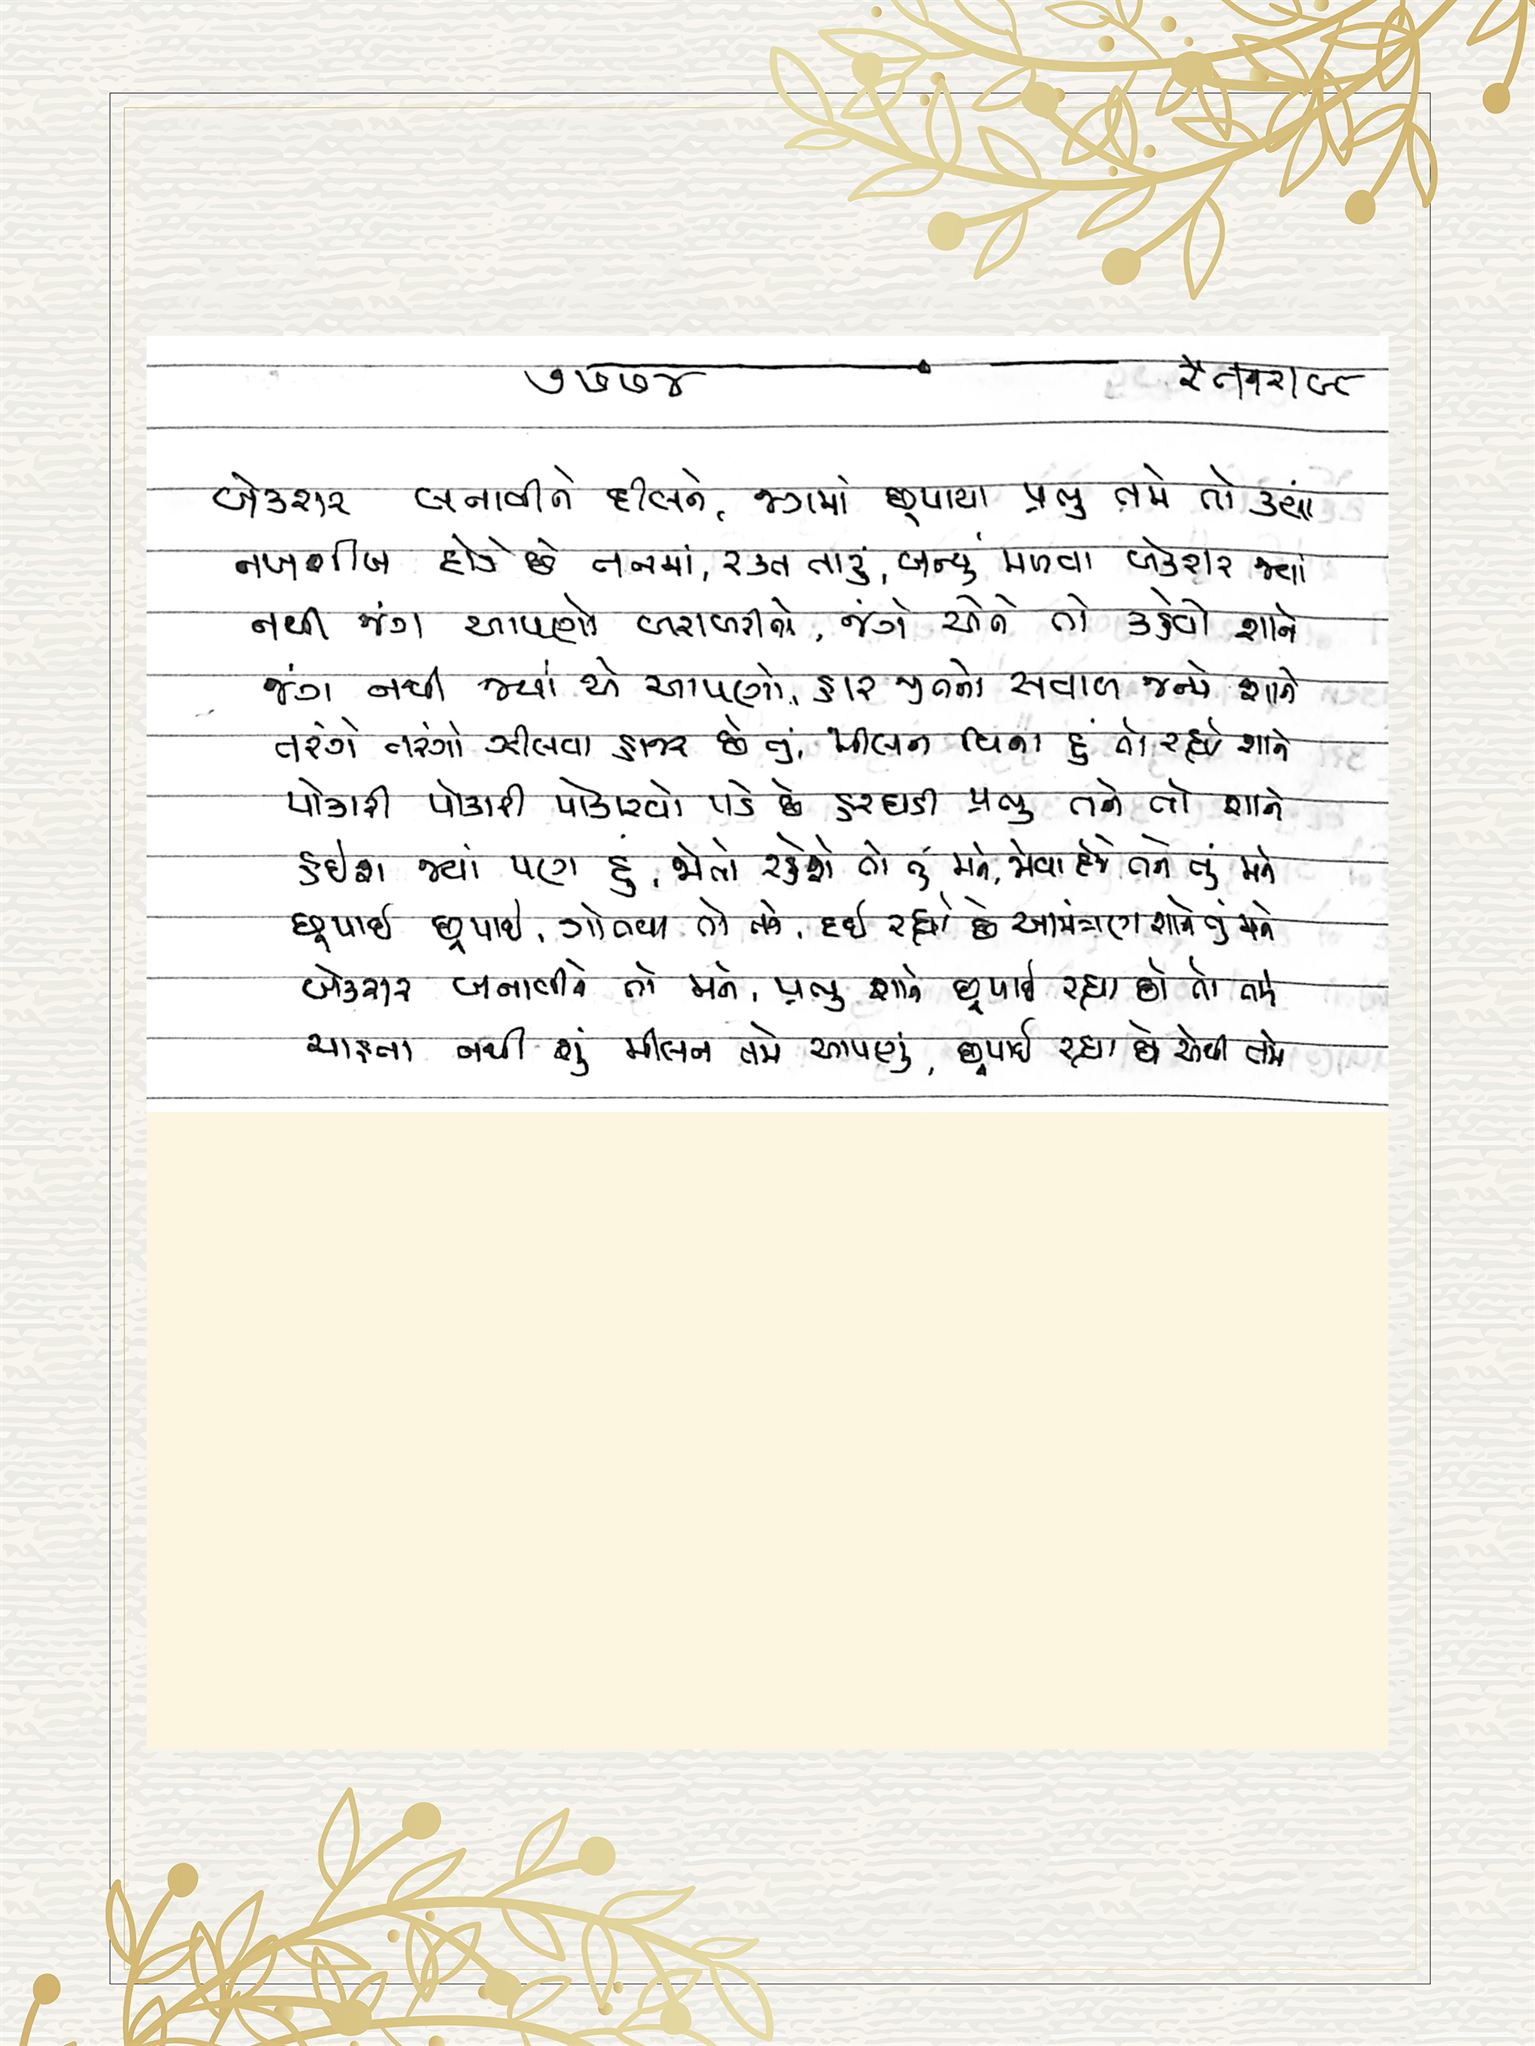 ૭૭૭૪
બેકરાર બનાવીને દીલને, જગમાં છૂપાયા પ્રભુ તમે તો ક્યાં
નખશીખ દોડે છે તનમાં, રક્ત તારું, બન્યું મળવા બેકરાર જ્યાં
નથી જંગ આપણો બરાબરીનો, જંગ એને તો કહેવો શાને
જંગ નથી જ્યાં એ આપણો, હાર જીતનો સવાલ જન્મે શાને
તરંગે તરંગો ઝીલવા હાજર છે તું, મીલન વિના હું તો રહ્યો શાને
પોકારી પોકારી પોકારવો પડે છે હરઘડી પ્રભુ તને તો શાને
હઇશ જ્યાં પણ હું, જોતો રહેશે તો તું મને, જોવા દેજે તને તું મને
છૂપાઈ છૂપાઈ, ગોતવા તો તને, દઈ રહ્યો છે આમંત્રણ શાને તું મને
બેકરાર બનાવીને તો મને, પ્રભુ શાને છૂપાઈ રહ્યા છો તો તમે
ચાહતા નથી શું મીલન તમે આપણું, છૂપાઈ રહ્યા છો એથી તમે